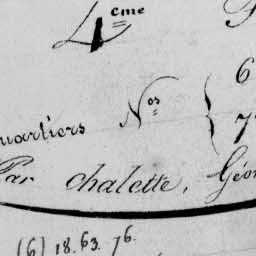 4cme
uartiers Nos 6
7
Par chalette, Géo
(6) 18. 63. 76.